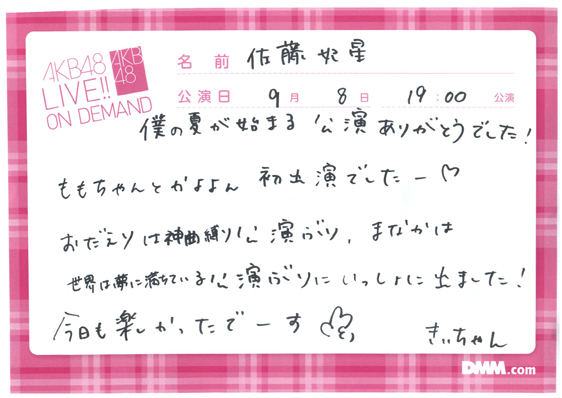 AKB48
LIVE!!
ON DEMAND
AKB
48
名前 佐藤妃星
公演日 9月 8日 19:00 公演
僕の夏が始まる公演ありがとうでした!
ももちゃんとかよよん 初出演でしたー♡
おだえりは神曲縛り公演ぶり、まなかは
世界は夢に満ちている公演ぶりにいっしょに出ました!
今日も楽しかったでーす
きぃちゃん
DMM.com